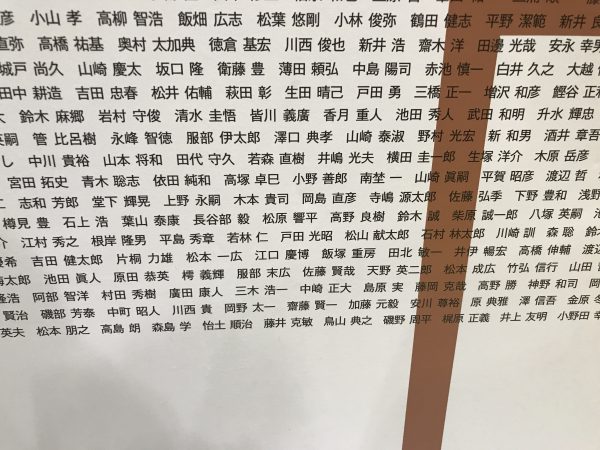 彦 小山 孝 高柳 智浩 飯畑 広志 松葉 悠剛 小林 俊弥 鶴田 健志 平野 潔範 新井 良
直弥 高橋 祐基 奥村 太加典 徳倉 基宏 川西 俊也 新井 浩 齋木 洋 田邊 光哉 安永 幸男
城戸 尚久 山崎 慶太 坂口 隆 衛藤 豊 薄田 頼弘 中島 陽司 赤池 慎一 白井 久之 大越
田中 耕造 吉田 忠春 松井 佑輔 萩田 彰 生田 晴己 戸田 勇 三橋 正一 増沢 和彦 鰹谷 正和
鈴木 麻郷 岩村 守俊 清水 圭悟 皆川 義廣 香月 重人 池田 秀人 武田 和明 升水 輝忠
英嗣 管 比呂樹 永峰 智徳 服部 伊太郎 澤口 典孝 山崎 泰淑 野村 光宏 新 和男 酒井 章吾
し 中川 貴裕 山本 将和 田代 守久 若森 直樹 井嶋 光夫 横田 圭一郎 生塚 洋介 木原 岳彦
宮田 拓史 青木 聡志 依田 純和 高塚 卓巳 小野 善郎 南埜 一 山崎 眞嗣 平賀 昭彦 渡辺 哲
仁 志和 芳郎 堂下 輝晃 上野 永嗣 木本 貴司 岡島 直彦 寺嶋 源太郎 佐藤 弘季 下野 豊和 浅野
樽見 豊 石上 浩 葉山 泰康 長谷部 毅 松原 響平 高野 良樹 鈴木 誠 柴原 誠一郎 八塚 英嗣
介 江村 秀之 根岸 隆男 平島 秀章 若林 仁 戸田 光昭 松山 献太郎 石村 林太郎 川崎 訓 森 聡 鈴木
優希 吉田 健太郎 片桐 力雄 松本 一広 江口 慶博 飯塚 重房 田北 敏一 井伊 暢宏 高橋 伸輔 渡辺
侑太郎 池田 眞人 原田 恭英 樗 義輝 服部 末広 佐藤 賢哉 天野 英二郎 松本 成広 竹弘 信行 山田
隆浩 阿部 智洋 村田 秀樹 廣田 康人 三木 浩一 中﨑 正大 島原 実 藤岡 克哉 高野 勝 神野 和司
賢治 磯部 芳泰 中町 昭人 川西 貴 岡野 太一 齋藤 賢一 加藤 元毅 安川 尊裕 原 典雅 澤 信吾 金原
英夫 松本 朋之 高島 朗 森島 学 怡土 順治 藤井 克敏 鳥山 典之 磯野 周平 梶原 正義 井上 友明 小野田